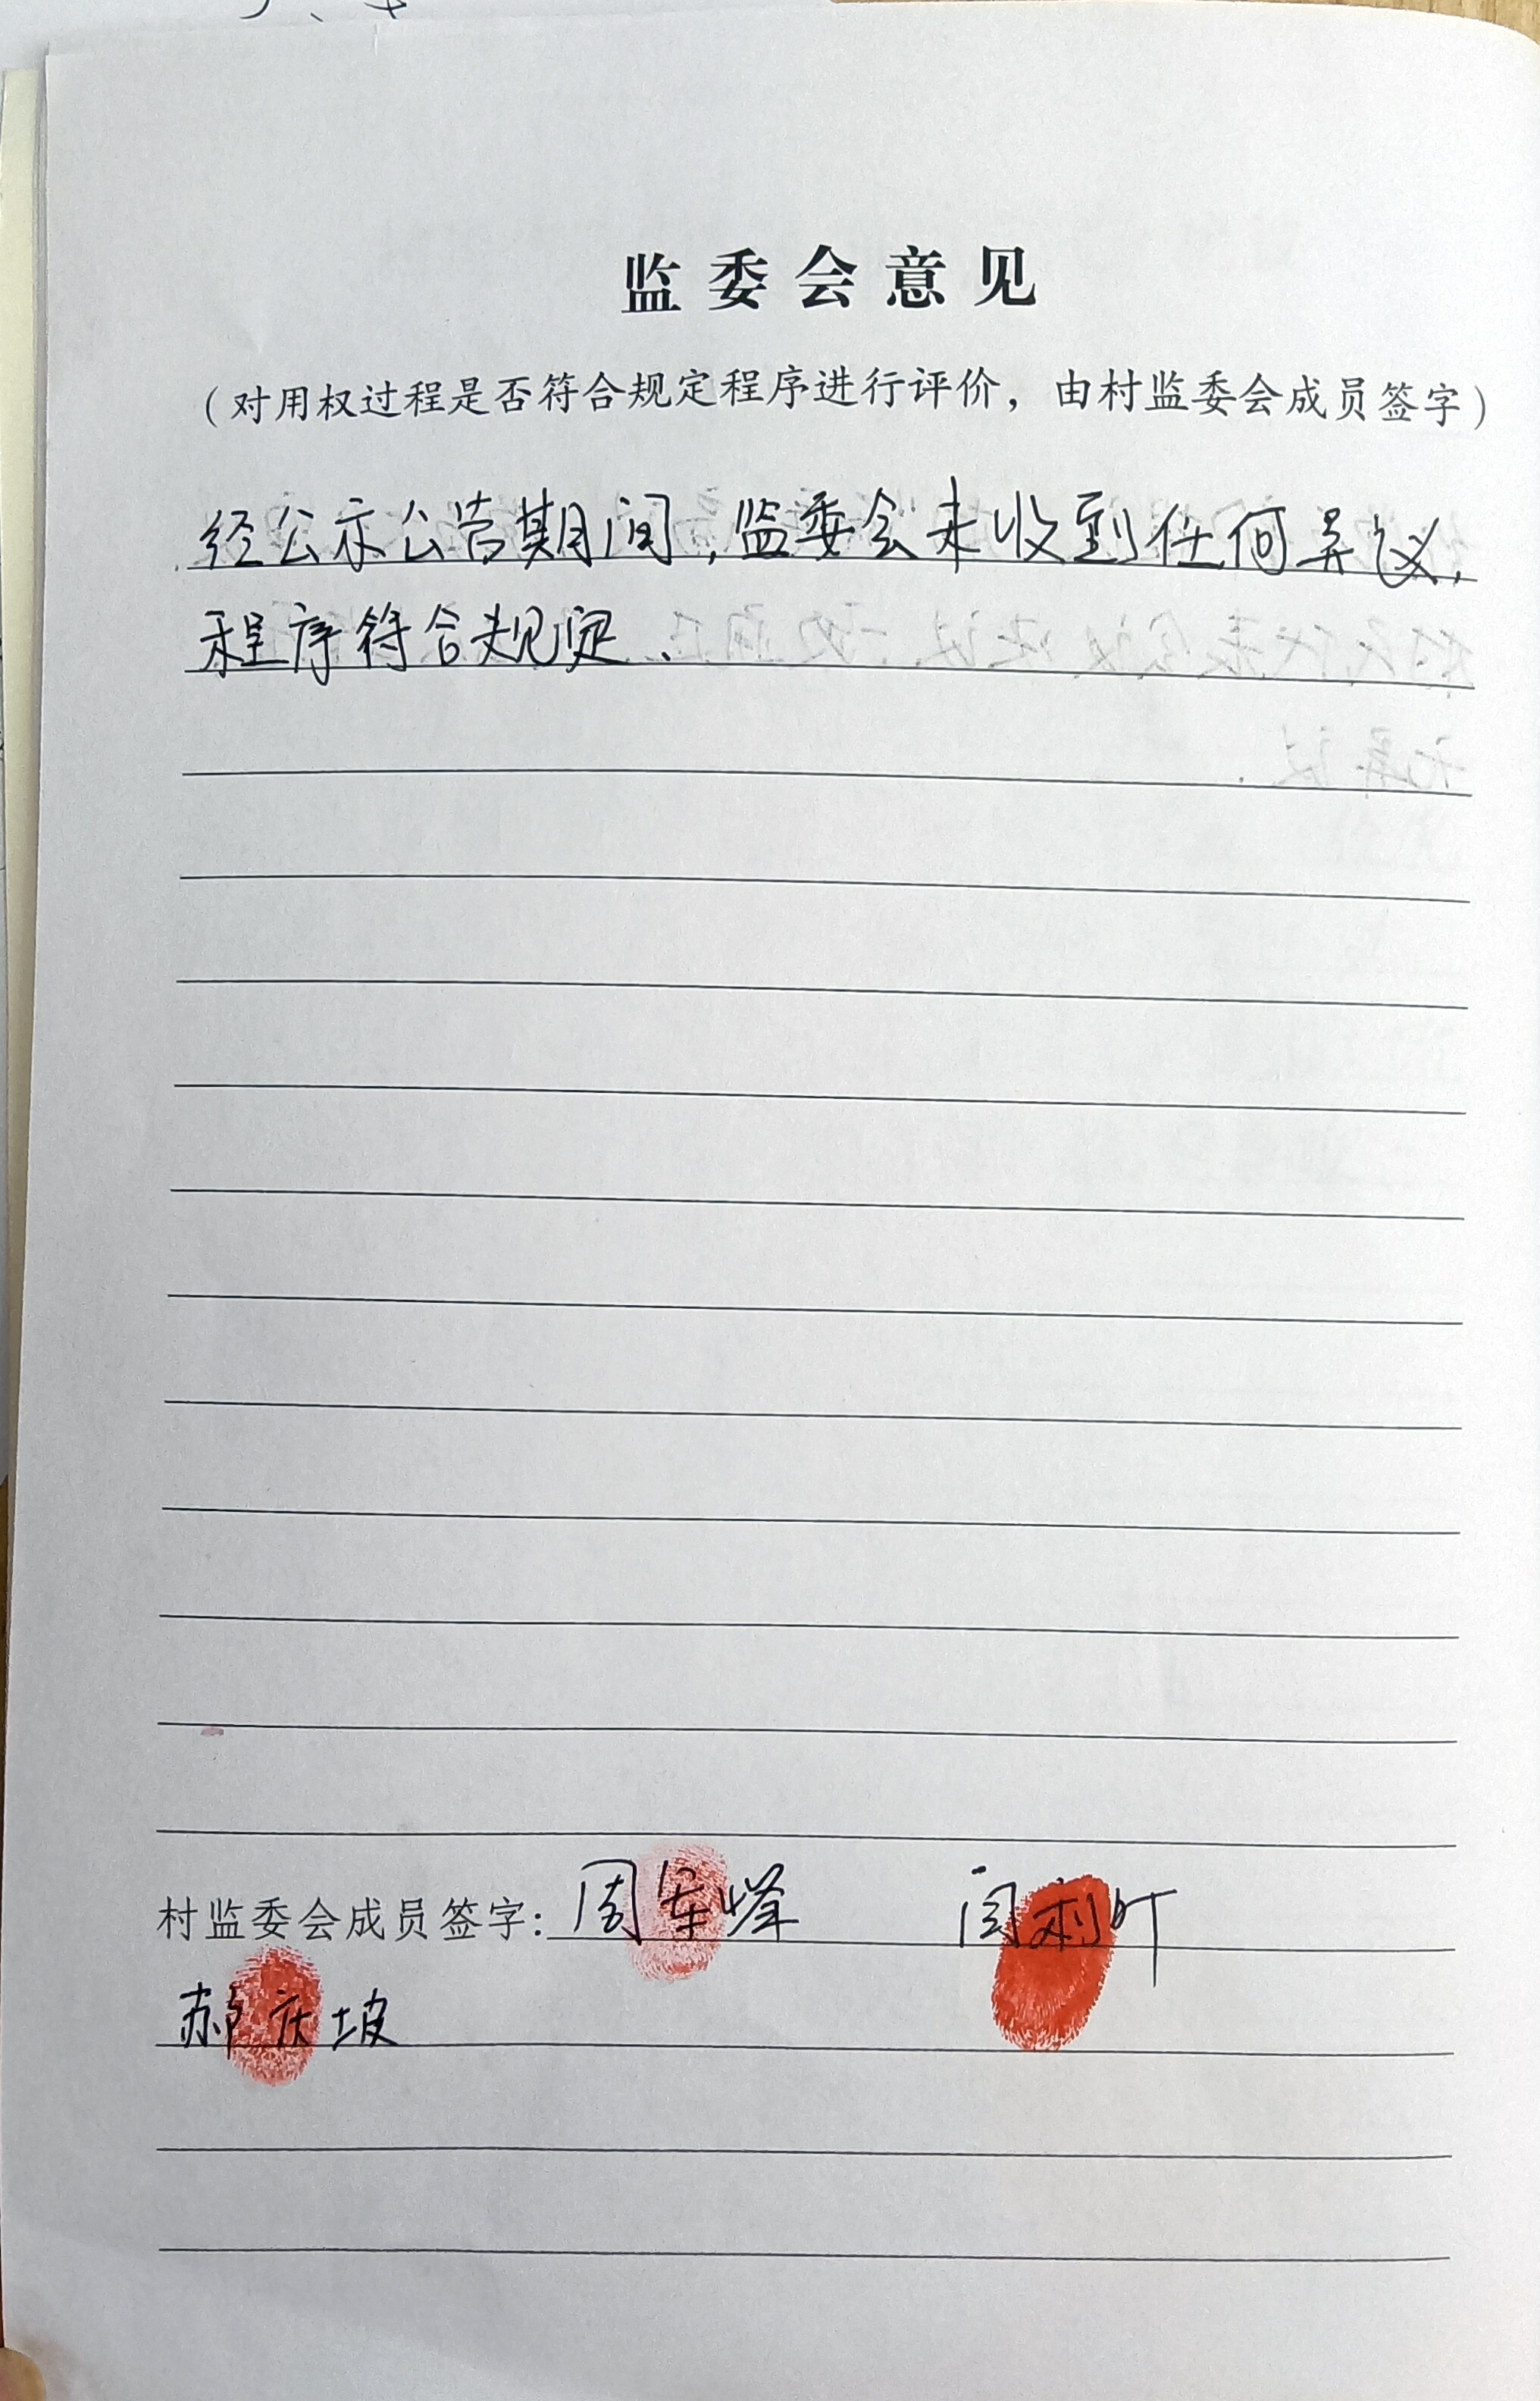 监委会意见
（对用权过程是否符合规定程序进行评价，由村监委会成员签字）
经公示公告期间，监委会未收到任何异议，
程序符合规定.
村监委会成员签字：周军峰 闫利叶
郝庆坡